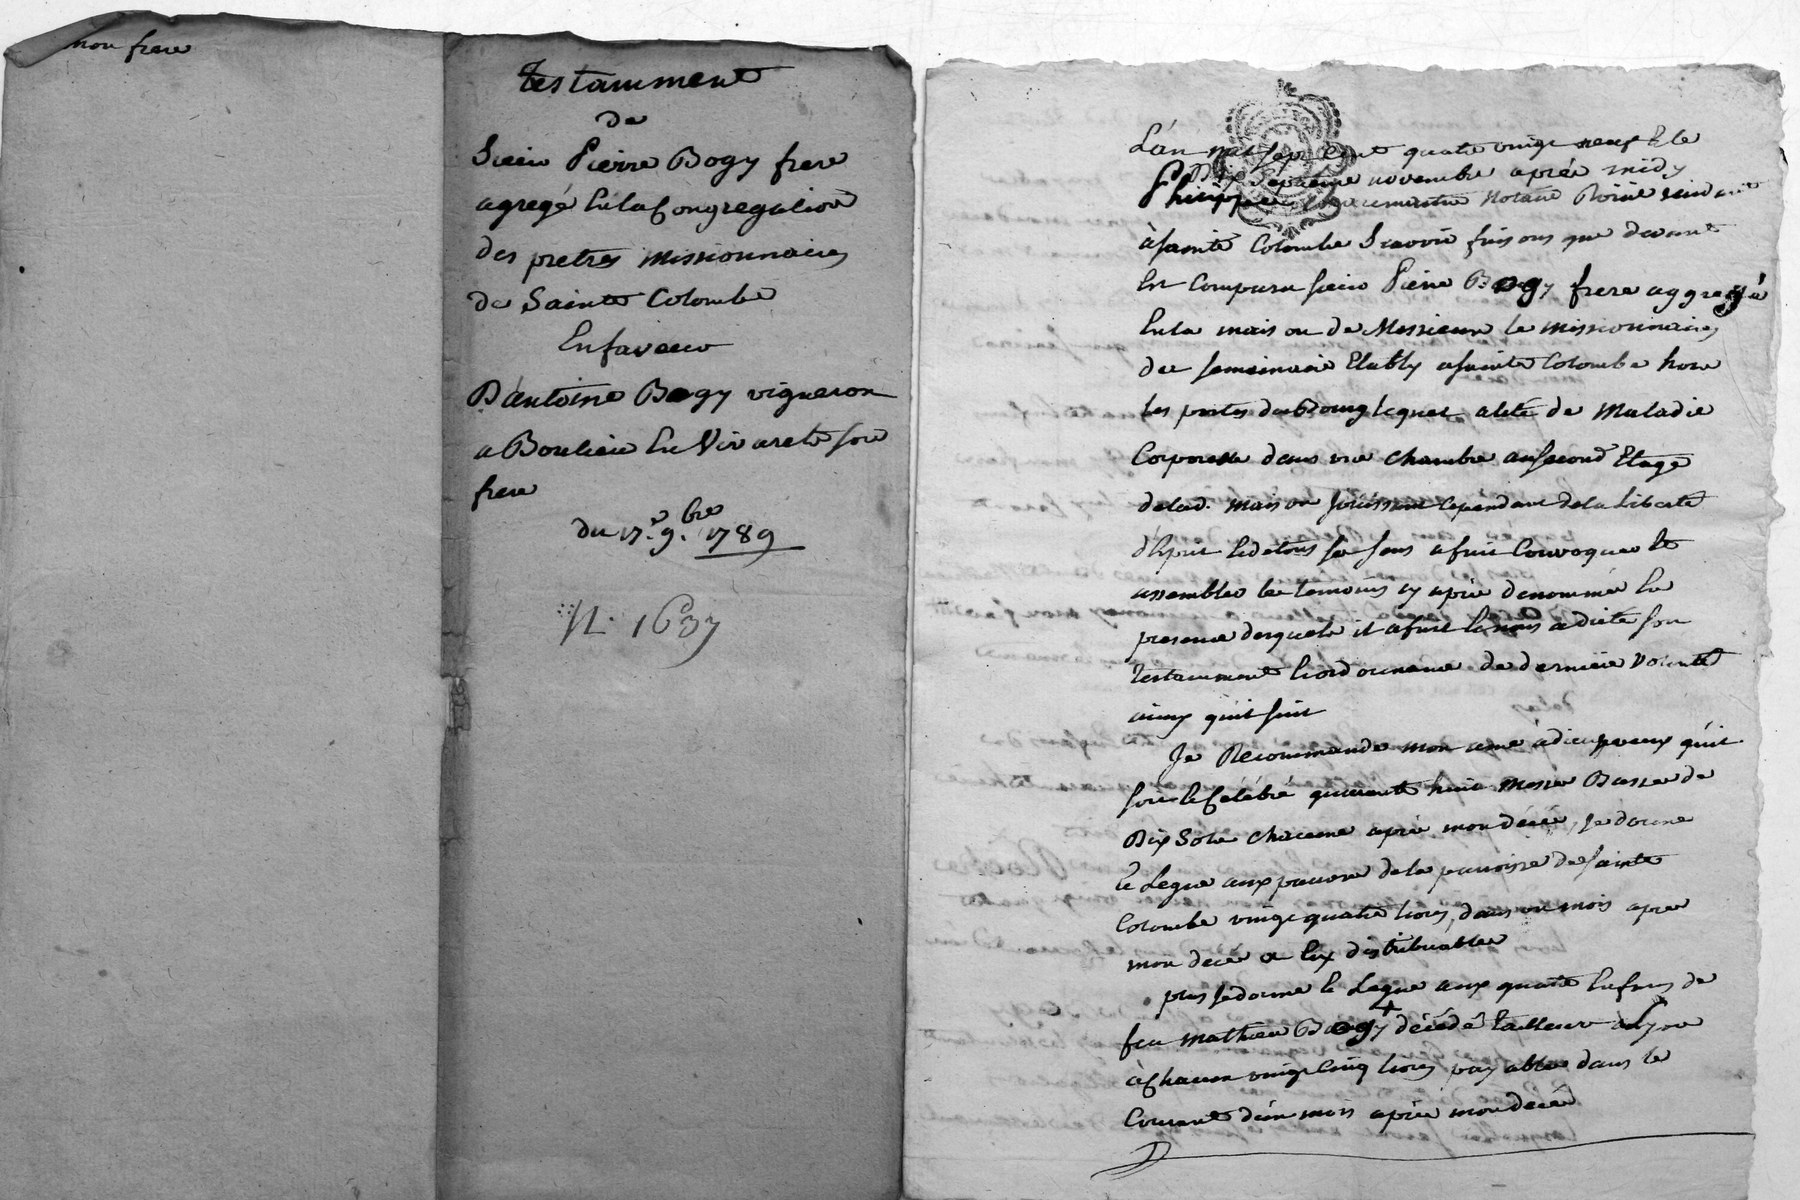 mon frere
Testamment
de
Sieur Pierre Bogy frere
agregé En la Congregation
des pretres missionnaires
de Sainte Colombe
En faveur
D'antoine Bogy vigneron
a Boulieu En Vivarets son
frere
du 17.e 9.bre 1789
N. 1637
L'an mil sept cent quatre vingt neuf & le
Dix Septieme novembre après midy
Philippe notaire Roïal resident
à sainte Colombe Scavoir faisons que devant
Est Comparu sieur Pierre Bogy frere aggregé
En la maison de Messieurs les missionnaires
du seminaire Etably a sainte Colombe hors
les portes du Bourg lequel alité de Maladie
Corporelle dans une chambre au second Etage
de lad. maison Joüissant Cependant de la Liberté
d'Esprit & de tous ses sens a fait Convoquer &
assembler les temoins cy après denommés En
presence desquels il a fait & nous a dicté son
testamment & ordonnance de derniere volonté
ainsy qu'il suit
Je Recommande mon ame à dieu, veux qu'il
soit Célébré quarante huit Messes Basses de
Dix Sols chacune après mon décès, Je donne
& Legue aux pauvres de la parroisse de sainte
Colombe vingt quatre livres, dans un mois après
mon decès a Eux distribuables
plus Je donne & Legue aux quatre Enfans de
feu mathieu Bogy + décédé tailleur a Lyon
à chacun vingt Cinq livres payables dans le
Courant d'un mois après mon decès